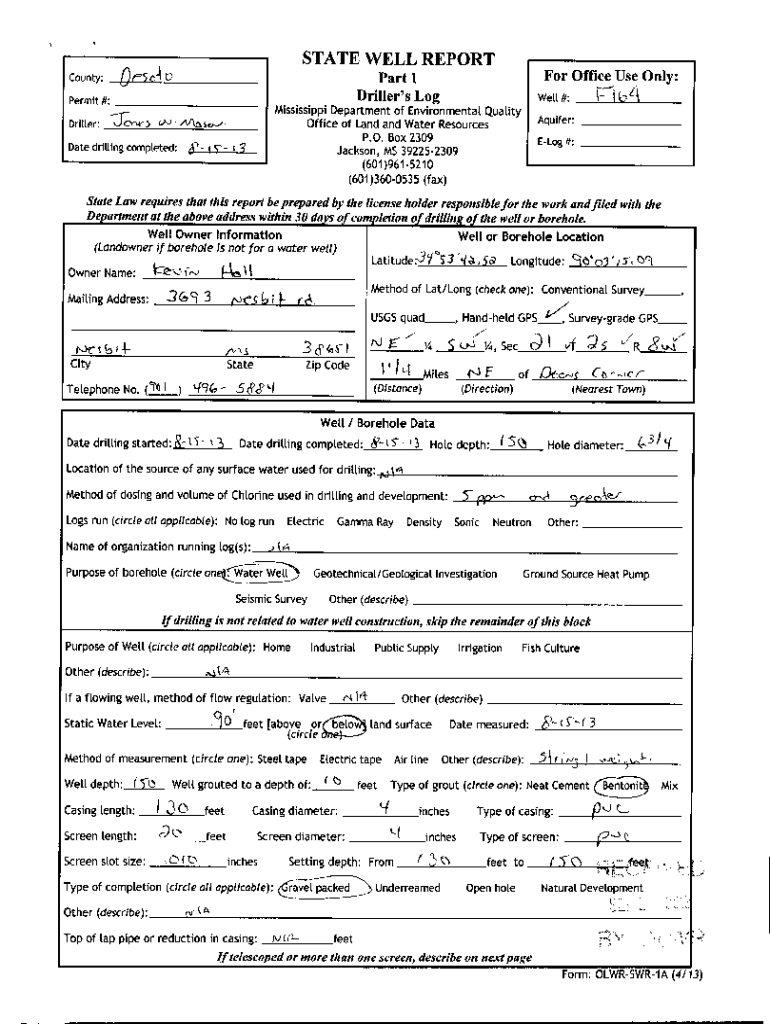 STATE WELL REPORT
Part 1
Driller's Log
Mississippi Department of Environmental Quality
Office of Land and Water Resources
P.O. Box 2309
Jackson, MS 39225-2309
(601)961-5210
(601)360-0535 (fax)
County: Desoto
Permit #:
Driller: Jones W. Mason
Date drilling completed: 8-15-13
For Office Use Only:
Well #: F164
Aquifer:
E-Log #:
State Law requires that this report be prepared by the license holder responsible for the work and filed with the
Department at the above address within 30 days of completion of drilling of the well or borehole.
Well Owner Information
(Landowner if borehole is not for a water well)
Owner Name: Kevin Hall
Mailing Address: 3693 Nesbit rd.
Nesbit MS 38651
City State Zip Code
Telephone No. (901) 496-5884
Well or Borehole Location
Latitude: 34°53'42.52 Longitude: 90°03'15.09
Method of Lat/Long (check one): Conventional Survey ,
USGS quad , Hand-held GPS ✓, Survey-grade GPS
NE ¼ SW ¼, Sec 21 of 2s R 8w
1 1/4 Miles NE of Deans Corner
(Distance) (Direction) (Nearest Town)
Well / Borehole Data
Date drilling started: 8-15-13 Date drilling completed: 8-15-13 Hole depth: 150 Hole diameter: 6 3/4
Location of the source of any surface water used for drilling: N/A
Method of dosing and volume of Chlorine used in drilling and development: 5 ppm and greater
Logs run (circle all applicable): No log run Electric Gamma Ray Density Sonic Neutron Other:
Name of organization running log(s): N/A
Purpose of borehole (circle one): Water Well Geotechnical/Geological Investigation Ground Source Heat Pump
Seismic Survey Other (describe)
If drilling is not related to water well construction, skip the remainder of this block
Purpose of Well (circle all applicable): Home Industrial Public Supply Irrigation Fish Culture
Other (describe): N/A
If a flowing well, method of flow regulation: Valve N/A Other (describe)
Static Water Level: 90' feet [above or below] land surface Date measured: 8-15-13
(circle one)
Method of measurement (circle one): Steel tape Electric tape Air line Other (describe): String / weight.
Well depth: 150 Well grouted to a depth of: 10 feet Type of grout (circle one): Neat Cement Bentonite Mix
Casing length: 130 feet Casing diameter: 4 inches Type of casing: PVC
Screen length: 20 feet Screen diameter: 4 inches Type of screen: PVC
Screen slot size: .010 inches Setting depth: From 130 feet to 150 feet
Type of completion (circle all applicable): Gravel packed Underreamed Open hole Natural Development
Other (describe): N/A
Top of lap pipe or reduction in casing: N/A feet
If telescoped or more than one screen, describe on next page
Form: OLWR-SWR-1A (4/13)